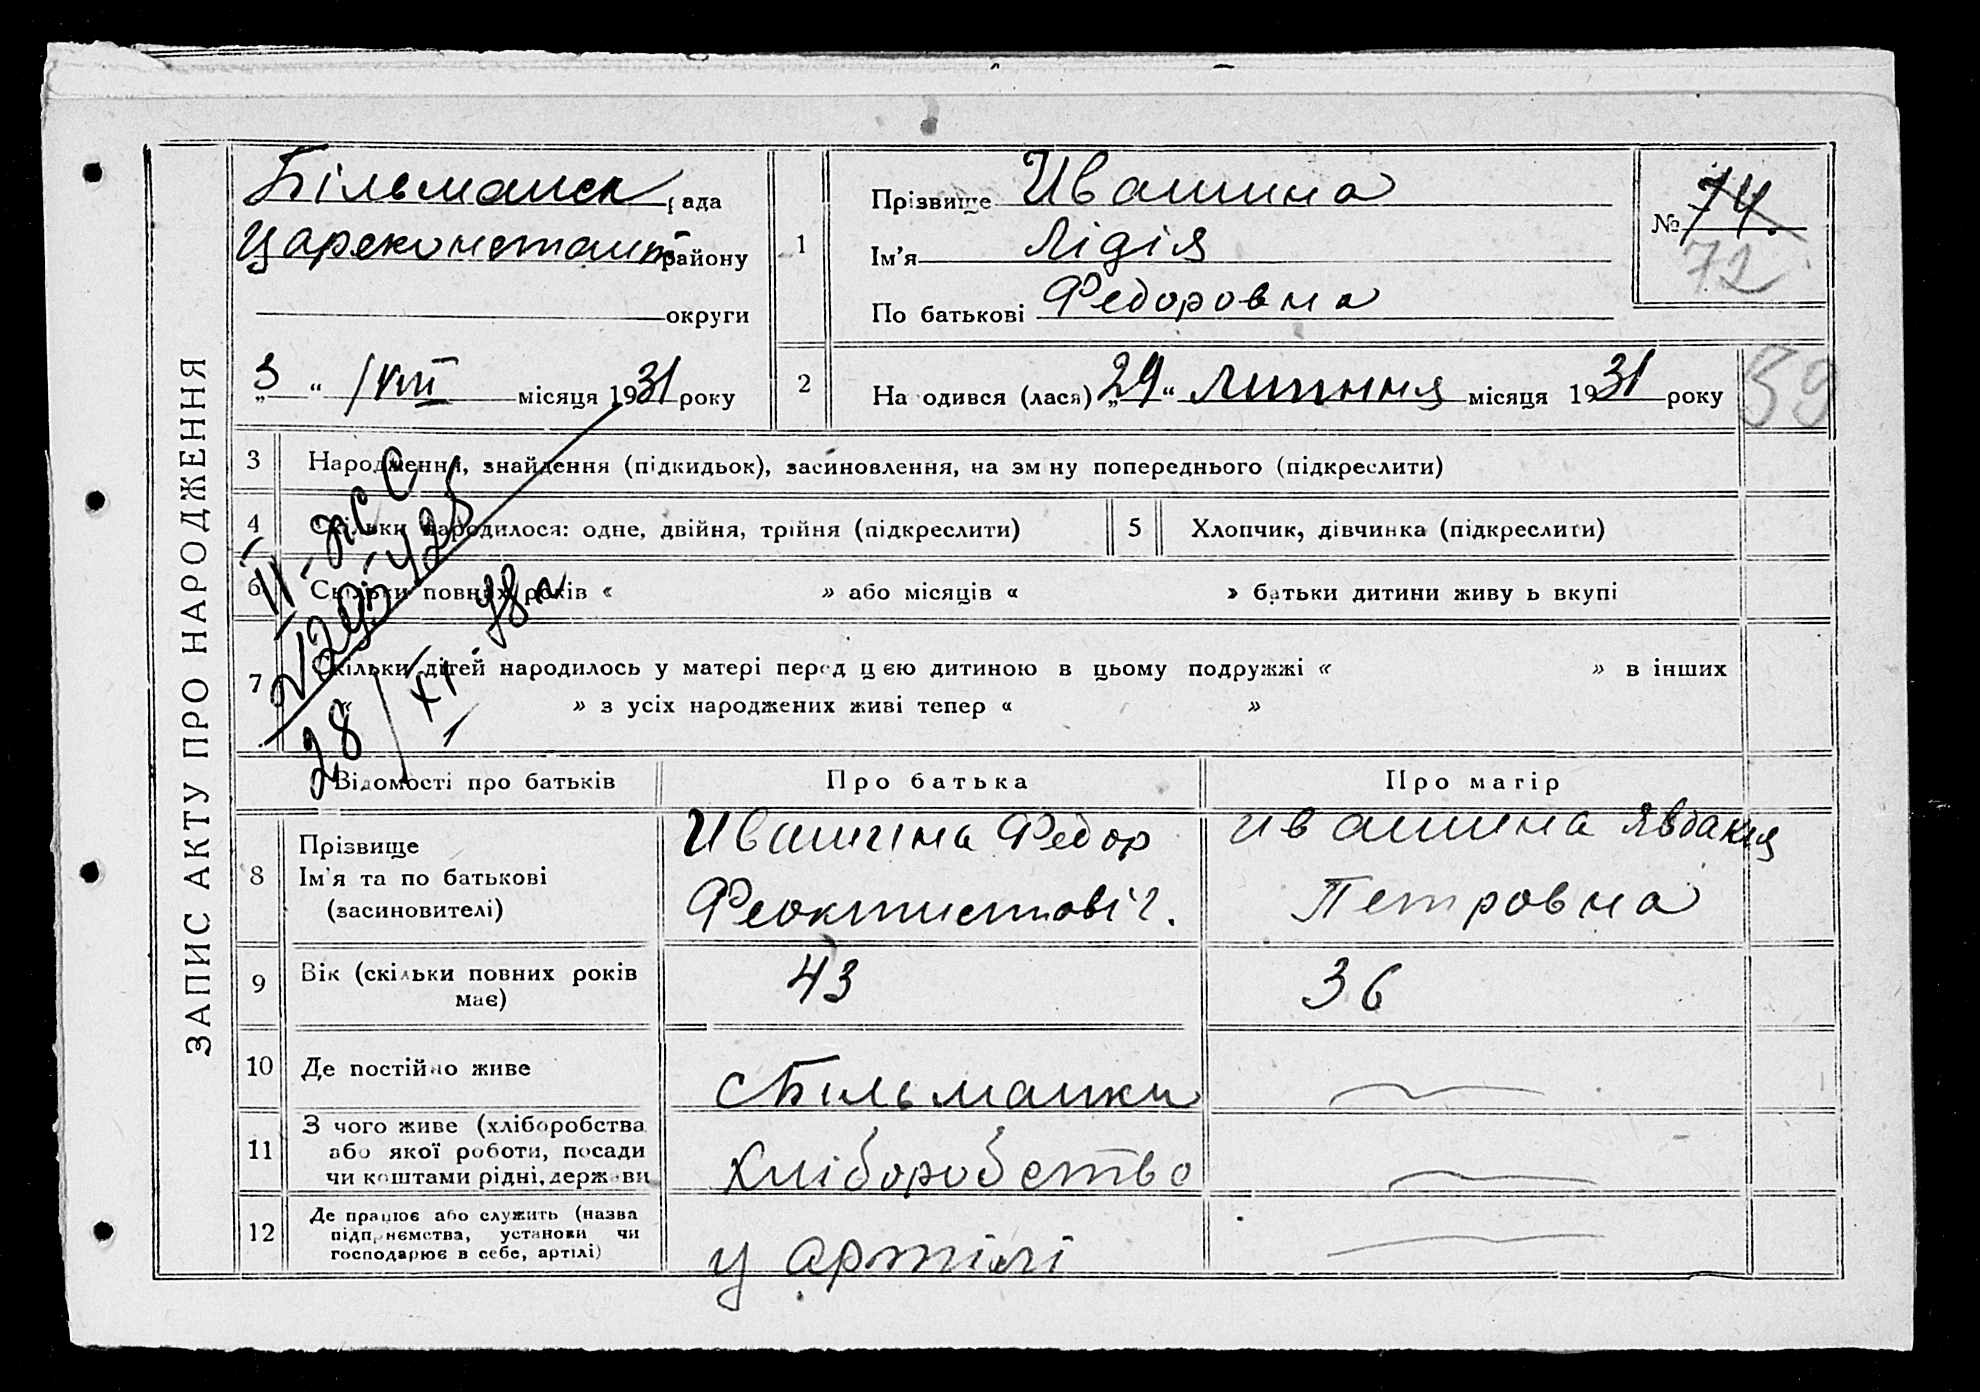 ЗАПИС АКТУ ПРО НАРОДЖЕННЯ
Більманск рада
Царекомстант району
округи
„3“ /VIII місяця 1931 року
1
Прізвище Ивашина
Ім'я Лідія
По батькові Федоровна
№ 74.
72
2
На одився (лася) „29“ Липння місяця 1931 року
59
3 Народження, знайдення (підкидьок), засиновлення, на зм ну попереднього (підкреслити)
4 Скільки народилося: одне, двійня, трійня (підкреслити)
5 Хлопчик, дівчинка (підкреслити)
6 Скільки повних років « » або місяців « » батьки дитини живу ь вкупі
7 Скільки дітей народилось у матері перед цією дитиною в цьому подружжі « » в інших
« » з усіх народжених живі тепер « »
28/XI
Відомості про батьків
Про батька
Про матір
8
Прізвище
Ім'я та по батькові
(засиновителі)
Ивашина Федор
Феоктистовіч.
Ивашина Явдакия
Петровна
9
Вік (скільки повних років
має)
43
36
10 Де постійно живе
с Більманки
11
З чого живе (хліборобства
або якої роботи, посади
чи коштами рідні, держави
Хліборобство
12
Де працює або служить (назва
підприємства, установи чи
господарює в себе, артілі)
у артілі